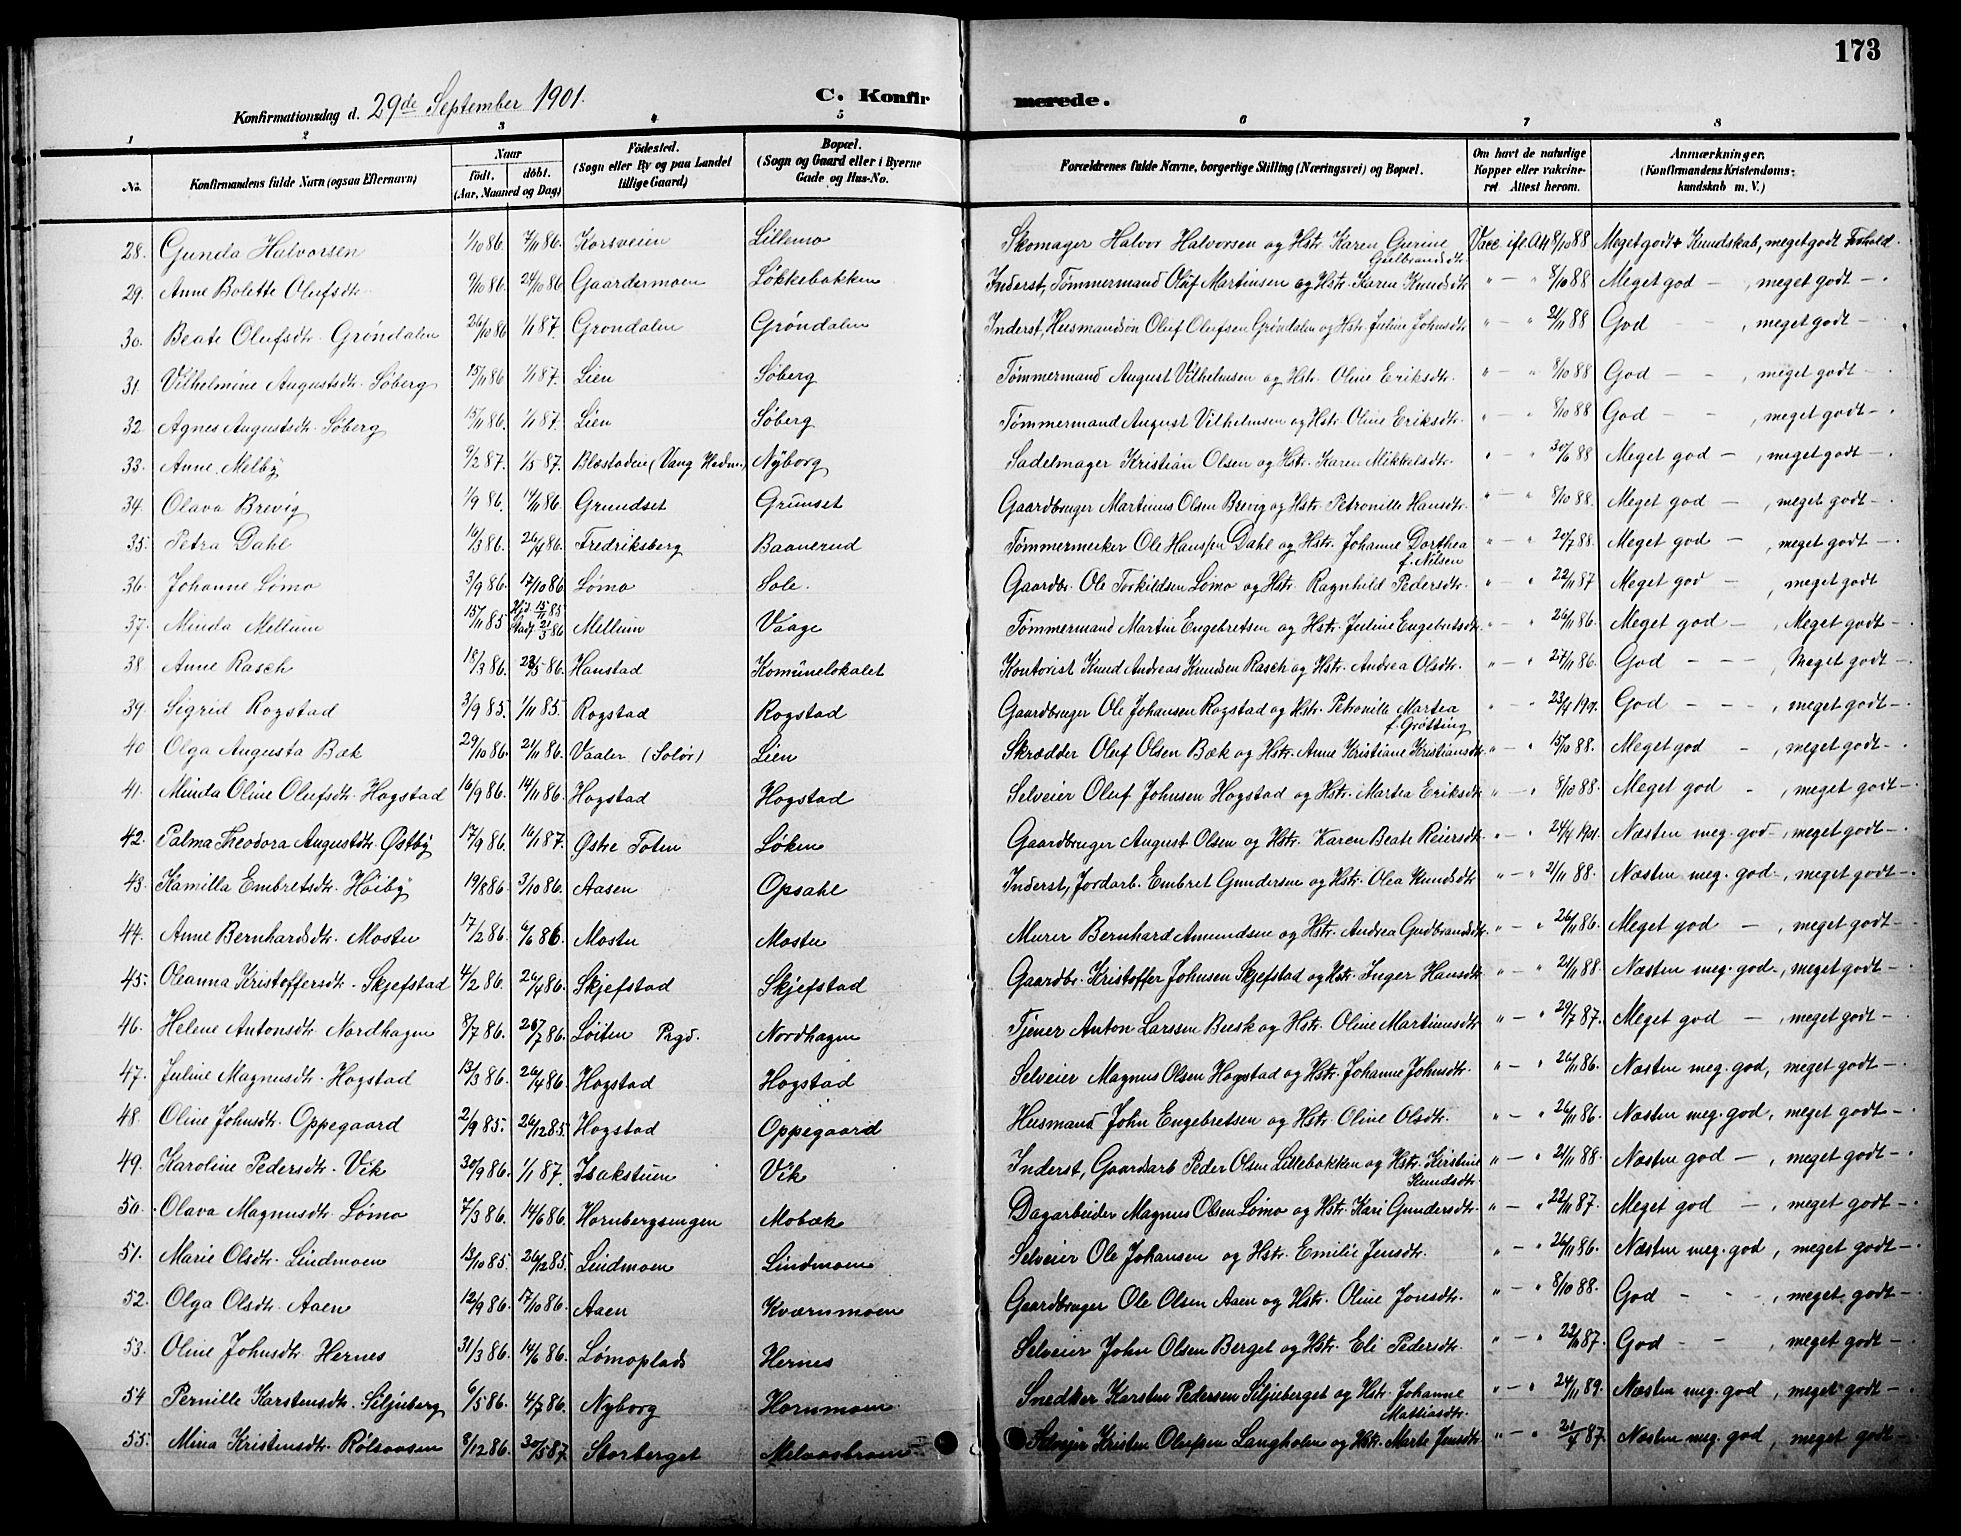 173
Konfirmationsdag d. 29de September 1901. C. Konfirmerede.
1 2 3 4 5 6 7 8
No. Konfirmandens fulde Navn (ogsaa Efternavn) Naar født. døbt. (Aar, Maaned og Dag) Fødested. (Sogn eller By og paa Landet tillige Gaard) Bopæl. (Sogn og Gaard eller i Byerne Gade og Hus-No. Forældrenes fulde Navne, borgerlige Stilling (Næringsvei) og Bopæl. Om havt de naturlige Kopper eller vakcineret. Attest herom. Anmærkninger. (Konfirmandens Kristendomskundskab m. V.)
28. Gunda Halvorsen 1/10 86. 7/11 86. Korsveien Lillemo Skomager Halvor Halvorsen og Hstr. Karen Gurine Gulbrandsdtr. Vacc. ifl. Att 8/10 88 Meget godt Kundskab, meget godt Forhold.
29. Anne Bolette Olufsdtr. 9/10 86. 24/10 86 Gaardermoen Løkkebakken Inderst, Tømmermand Oluf Martinsen og Hstr. Karen Knudsdtr. " — " 8/10 88 Meget god — , meget godt —.
30. Beate Olufsdtr. Grøndalen 26/10 86 1/1 87. Grøndalen Grøndalen Inderst, Husmandsøn Oluf Olufsen Grøndalen og Hstr. Juline Johnsdtr. " — " 21/11 88 God — , meget godt —.
31. Vilhelmine Augustsdtr. Søberg 15/11 86 1/1 87. Lien Søberg Tømmermand August Vilhelmsen og Hstr. Oline Eriksdtr. " — " 8/10 88 God — — , meget godt —.
32. Agnes Augustsdtr. Søberg 15/11 86. 1/1 87. Lien Søberg Tømmermand August Vilhelmsen og Hstr. Oline Eriksdtr. " — " 8/10 88 God — — , meget godt —.
33. Anne Melby 9/2 87. 1/5 87. Blæstadeie (Vang Hedm.) Nyborg Sadelmager Kristian Olsen og Hstr. Karen Mikkelsdtr. " — " 30/6 88 Meget god — , meget godt —.
34. Olava Brevig 1/9 86. 14/11 86. Grundset Grunset Gaardbruger Martinus Olsen Brevig og Hstr. Petronille Hansdtr. " — " 8/10 88. Meget god — , meget godt —.
35. Petra Dahl 16/3 86. 26/4 86. Fredriksberg Baanerud Tømmermerker Ole Hanssen Dahl og Hstr. Johanne Dorthea f. Nilsen " — " 20/7 88. Meget god — , meget godt —.
36. Johanne Lømo 3/9 86. 17/10 86. Lømo Sole. Gaardbr. Ole Torkildsen Lømo og Hstr. Ragnhild Pedersdtr. " — " 22/11 87 Meget god — , meget godt
37. Minda Mellum 15/11 85 Hjd. 15/11 85 Stadf. 21/3 86 Mellum Vaage Tømmermand Martin Engebretsen og Hstr. Juline Engebretsdtr. " — " 26/11 86. Meget god — , Meget godt —.
38 Anne Rasch 18/3 86. 23/5 86. Hanstad Komünelokalet Kontorist Knud Andreas Knudsen Rasch og Hstr. Andrea Olsdtr. " — " 27/11 86. God — — — , Meget godt —.
39. Sigrid Rogstad 3/9 85. 1/11 85. Rogstad Rogstad Gaardbruger Ole Johansen Rogstad og Hstr. Petronille Martea f. Grøtting " — " 23/4 1901. God — — — , meget godt —.
40 Olga Augusta Bæk 29/10 86. 21/11 86. Vaaler (Solør) Lien Skrædder Oluf Olsen Bæk og Hstr. Anne Kristiane Kristiansdtr. " — " 15/10 88. Meget god — , meget godt —.
41. Minda Oline Olufsdtr. Hogstad 16/9 86. 14/11 86. Hogstad Hogstad Selveier Oluf Johnsen Hogstad og Hstr. Martea Eriksdtr. " — " 8/10 88. Meget god — , meget godt —.
42. Palma Theodora Augustdtr. Østby 17/9 86. 16/1 87. Østre Toten Løken Gaardbruger August Olsen og Hstr. Karen Beate Reiersdtr. " — " 24/4 1901. Næsten meg. god —, meget godt —.
43. Kamilla Embretsdtr. Høiby 19/8 86. 3/10 86. Aasen Opsahl Inderst, Jordarb. Embret Gundersen og Hstr. Olea Knudsdtr. " — " 21/11 88. Næsten meg. god —, meget godt —.
44. Anne Bernhardsdtr. Mosteu 17/2 86. 6/6 86. Mosteu Mosteu Murer Bernhard Amundsen og Hstr. Andrea Gudbrandsdtr. " — " 26/11 86. Meget god — , meget godt —.
45. Oleanna Kristoffersdtr. Skjefstad 4/2 86. 26/4 86. Skjefstad Skjefstad Gaardbr. Kristoffer Johnsen Skjefstad og Hstr. Inger Hansdtr. " — " 21/11 88. Næsten meg. god —, meget godt —.
46. Helene Antonsdtr. Nordhagen 8/7 86. 26/7 86. Løiten Prgd. Nordhagen Tjener Anton Larssen Busk og Hstr. Oline Martinusdtr. " — " 29/7 87. Meget god — , meget godt —
47. Juline Magnusdtr. Hogstad 13/3 86. 26/4 86. Hogstad Hogstad Selveier Magnus Olsen Hogstad og Hstr. Johanne Johnsdtr. " — " 26/11 86. Næsten meg. god, meget godt —.
48. Oline Johnsdtr. Oppegaard 2/9 85. 26/12 85. Hogstad Oppegaard Husmand John Engebretsen og Hstr. Oline Olsdtr. " — " 26/11 86. Næsten meg. god, meget godt —.
49. Karoline Pedersdtr. Vik 30/9 86. 1/1 87. Isakstuen Vik Inderst, Gaardarb. Peder Olsen Lillebakken og Hstr. Kirstine Knudsdtr. " — " 21/11 88. Næsten god — , meget godt —.
50. Olava Magnusdtr. Lømo 7/3 86. 14/6 86. Hornbergsengen Mobæk Dagarbeider Magnus Olsen Lømo og Hstr. Kari Gundersdtr. " — " 22/11 87. Meget god — , meget godt —.
51. Marie Olsdtr. Lindmoen 13/10 85. 26/12 85. Lindmoen Lindmoen Selveier Ole Johansen og Hstr. Emilie Jensdtr. " — " 26/11 86. Næsten meg. god, meget godt —.
52. Olga Olsdtr. Aaen 12/9 86. 17/10 86. Aaen Kværnmoen Gaardbruger Ole Olsen Aaen og Hstr. Oline Jonsdtr. " — " 8/10 88. God — — , meget godt —.
53. Oline Johnsdtr. Hernes 31/3 86. 14/6 86. Lømoplads Hernes Selveier John Olsen Berget og Hstr. Eli Pedersdtr. " — " 22/11 87. God — — , meget godt —.
54 Pernille Karstensdtr. Siljuberg 6/5 86. 4/7 86. Nyborg Hornmoen Snedker Karsten Pedersen Siljuberget og Hstr. Johanne Mattiasdtr. " — " 24/11 89. Næsten meg. god, meget godt —.
55. Mina Kristensdtr. Rølsaasen 8/12 86. 30/5 87. Storberget Melaasbraen Selvejer Kristen Olufsen Langholen og Hstr. Marte Jensdtr. " — " 21/4 87. Næsten meg. god, meget godt —.